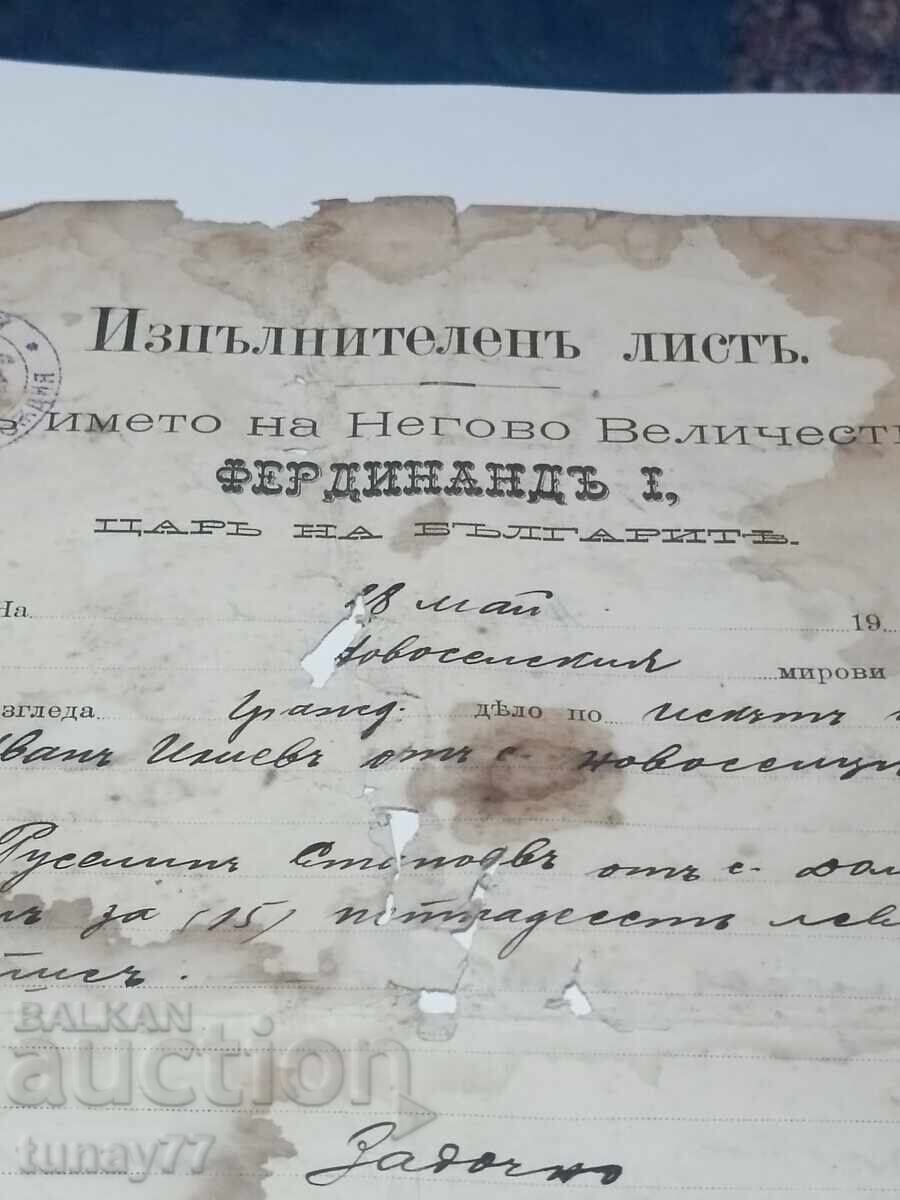 Изпълнителенъ листъ.
въ името на Негово Величест
ФЕРДИНАНДЪ I,
ЦАРЬ НА БЪЛГАРИТѢ.
На 28 май 19
Новоселския мирови
згледа Гражд. дѣло по искътъ
Иванъ Илиевъ отъ с. Новоселци
Руселинъ отъ с. Дол
за (15) петнадесеть лев
Задочно
BALKAN
auction
tunay77